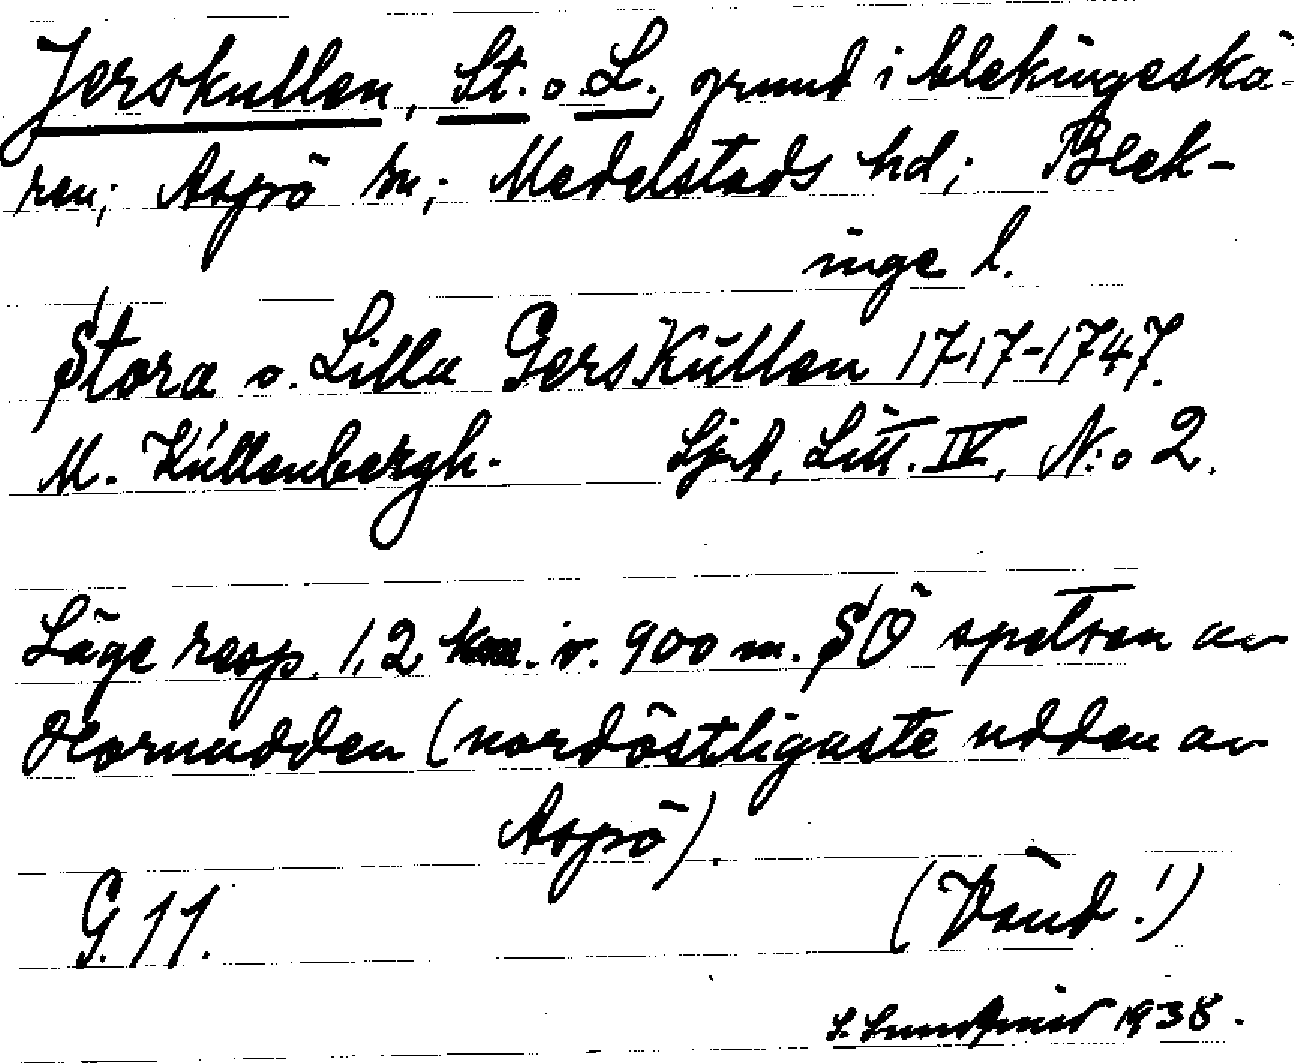 Jerskullen, St. o. L., grund i blekingeskä-
ren; Aspö sn; Medelstads hd; Blek-
inge l.
Stora o. Lilla GersKullen 1717-1747.
M. Kúllenbergh. SjA, Litt. IV, N:o 2.
Läge resp. 1,2 km. o. 900 m. SÖ spetsen av
Hornudden (nordöstligaste udden av
Aspö).
G. 11.
(Vänd!)
1938.